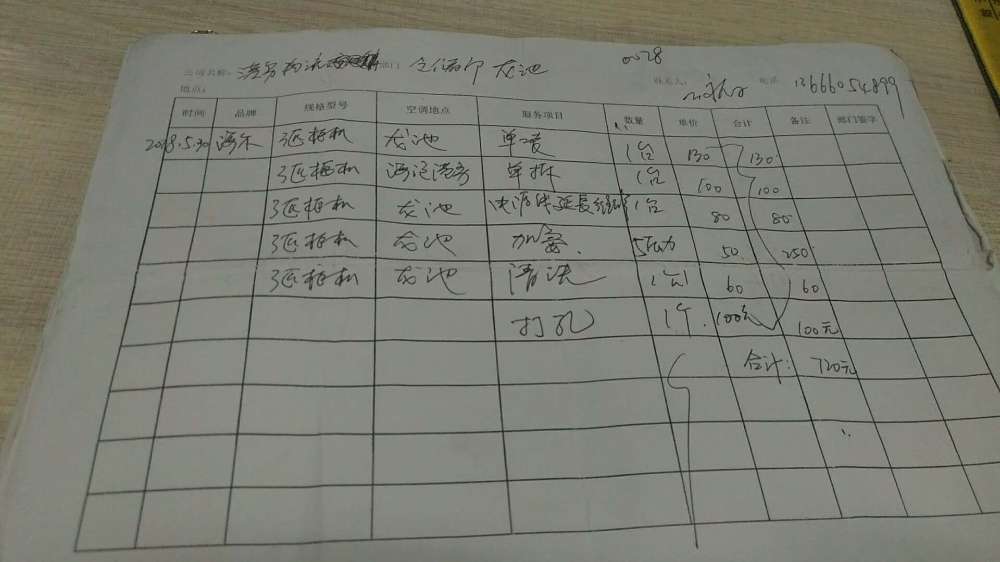 0028
公司名称: 港务物流 部门 仓储部 龙池 联系人: 电话 13666054899
地点:
时间 品牌 规格型号 空调地点 服务项目 数量 单价 合计 备注 部门签字
2018.5.30 海尔 3匹柜机 龙池 单装 1台 130 130
3匹柜机 海沧港务 单拆 1台 100 100
3匹柜机 龙池 电源线延长 1台 80 80
3匹柜机 龙池 加氨. 5压力 50 250
3匹柜机 龙池 清洗 1台 60 60
打孔 1个. 100元 100元
合计: 720元